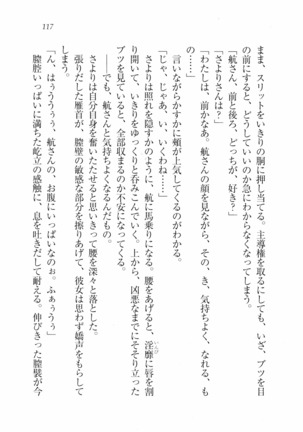 117
まま、スリットをいきりの胴に押し当てる。主導権を取るにしても、いざ、ブツを目
の前にすると、どうしていいのか急にわからなくなってしまう。
「航さん、前と後ろ、どっちが、好き？」
「さよりさんは？」
「わたしは、前かなあ。航さんの顔を見ながら、その、き、気持ちよく、なれる、も
の……」
　言いながらかすかに頬が上気してくるのがわかる。
「じゃ、じゃあ、い、いくわね……」
　さよりは照れを隠すかのように、航に馬乗りになる。腰をあげると、淫靡に唇を割
いんび
り開いて、いきりをゆっくりと呑みこんでいく。上から、凶悪なまでにそそり立った
ブツを見ていると、全部収まるのか不安になってくる。
　――でも、航さんと気持ちよくなるんだもの。
　さよりは自分自身を奮いたたせると思いきって腰を深々と落とした。
　張りだした雁首が、膣壁の敏感な部分を擦りあげて、彼女は思わず嬌声をもらして
しまう。
「ん、はぅうううぅ、航さんの、お腹にいっぱいなのぉ。ふぁぅうぅ」
　膣腔いっぱいに満ちた屹立の感触に、息を吐きだして耐える。伸びきった膣襞が今